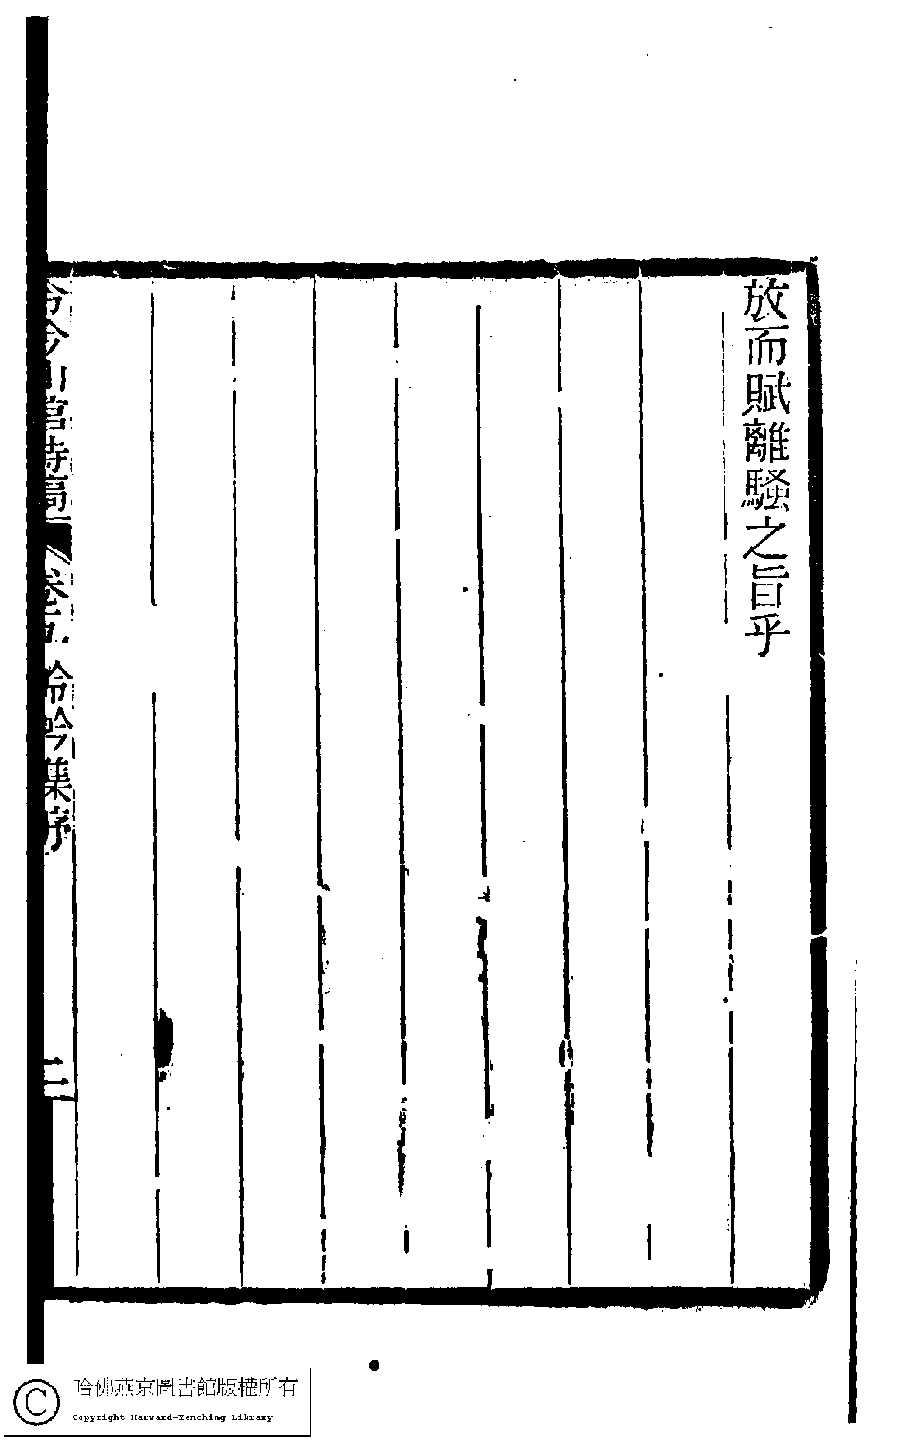 放而賦離騷之旨乎
山官詩稿
卷五 冷吟集序
二
哈佛燕京圖書館版權所有
Copyright Harvard-Yenching Library